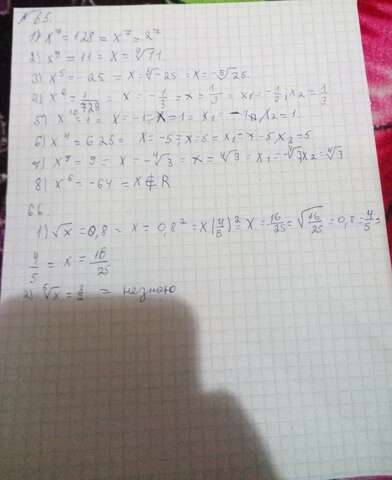 № 65.
1) x⁷ = 128 = x⁷ = 2⁷
2) x⁹ = 11 = x = ⁹√11.
3) x⁵ = -25 = x = ⁵√-25 = x = -⁵√25.
4) x⁶ = 1/729 = x = -1/3 = x = 1/3 = x₁ = -1/3, x₂ = 1/3
5) x¹⁰ = 1 = x = -1 = x = 1 = x₁ = -1, x₂ = 1.
6) x⁴ = 625 = x = -5; x = 5 = x₁ = -5 x₂ = 5
8) x⁶ = -64 = x ∉ R
66.
1) √x = 0,8 = x = 0,8² = x(4/5)² = x = 16/25 = √16/25 = 0,8 = 4/5 =
4/5 = x = 16/25
= незнаю